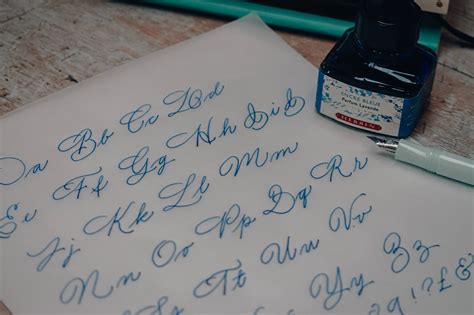 Aa Bb Cc Dd
Ee Ff Gg Hh Ii
Jj Kk Ll Mm
Nn Oo Pp Qq Rr
Ss Tt Uu Vv
Yy Zz
ENCRE BLEUE
Parfum Lavande
HERBIN